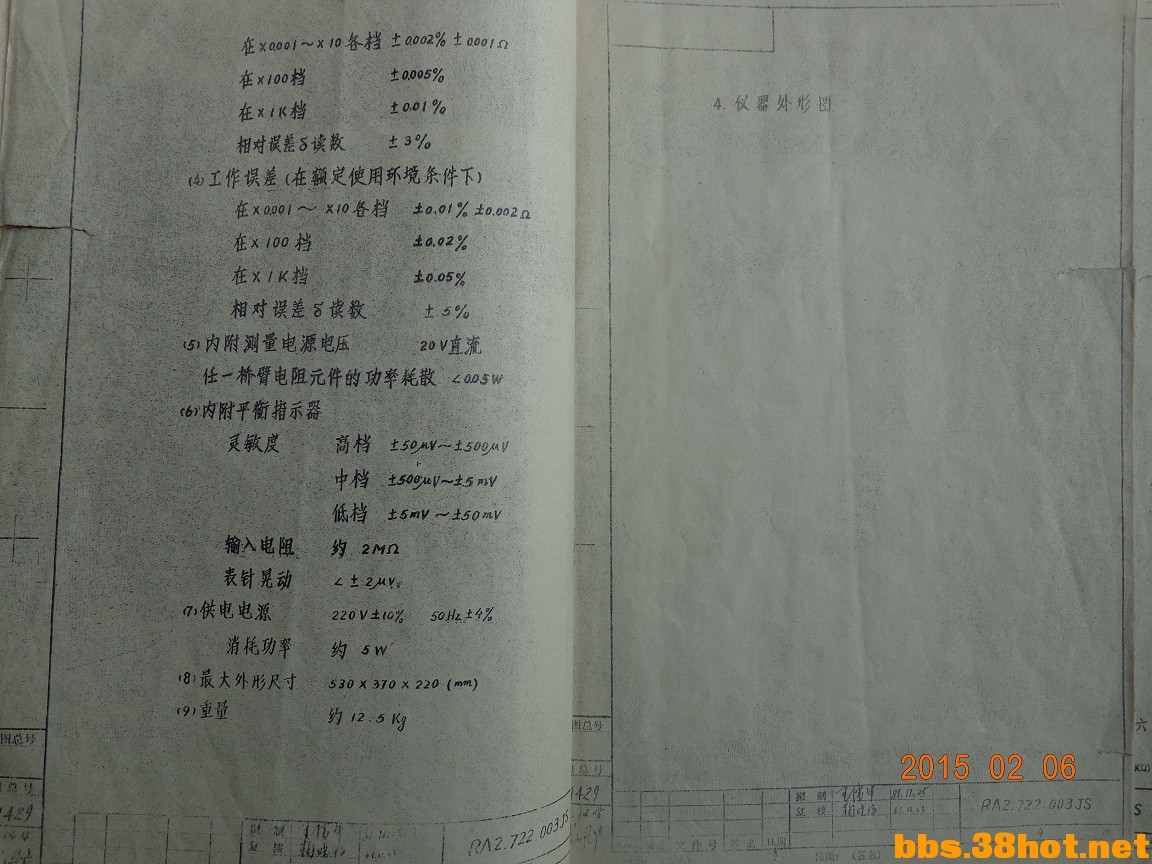 在×0.001～×10各档 ±0.002% ±0.001Ω
在×100档 ±0.005%
在×1K档 ±0.01%
相对误差δ读数 ±3%
(4)工作误差(在额定使用环境条件下)
在×0.001～×10各档 ±0.01% ±0.002Ω
在×100档 ±0.02%
在×1K档 ±0.05%
相对误差δ读数 ±5%
(5)内附测量电源电压 20V直流
任一桥臂电阻元件的功率耗散 <0.05W
(6)内附平衡指示器
灵敏度 高档 ±50μV～±500μV
中档 ±500μV～±5mV
低档 ±5mV～±50mV
输入电阻 约 2MΩ
表针晃动 <±2μV。
(7)供电电源 220V±10% 50Hz±4%
消耗功率 约 5W
(8)最大外形尺寸 530×370×220 (mm)
(9)重量 约 12.5Kg
图总号
总号
1429
拟制
复核
RA2.722.003JS
4.仪器外形图
图总号
总号
1429
拟制 81.11.25
复核
RA2.722.003JS
文件号 签名 日期
六
KΩ)
S
2015 02 06
bbs.38hot.net